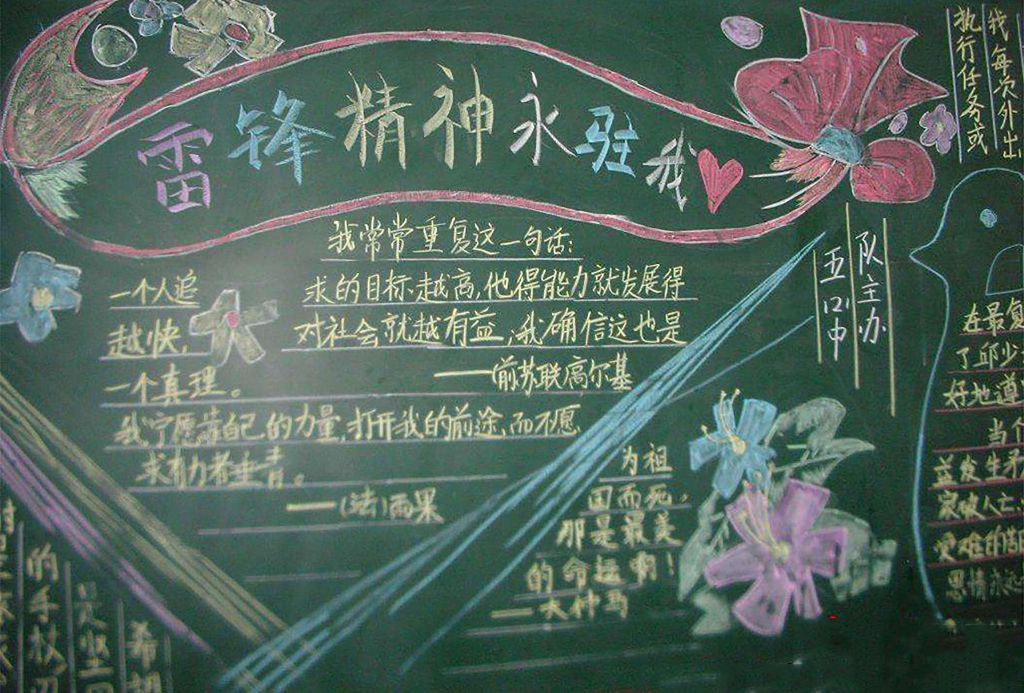 雷锋精神永驻我
我常常重复这一句话:
一个人追求的目标越高,他得能力就发展得
越快,对社会就越有益,我确信这也是
一个真理。
——(前苏联)高尔基
我宁愿靠自己的力量,打开我的前途,而不愿
求有力者垂青。
——(法)雨果
为祖
国而死,
那是最美
的命运啊!
——大仲马
五(2)中
队主办
我每次外出
执行任务或
在最
了邱少
好地
当
益发生矛
家破人亡
更难的
的手杖
希